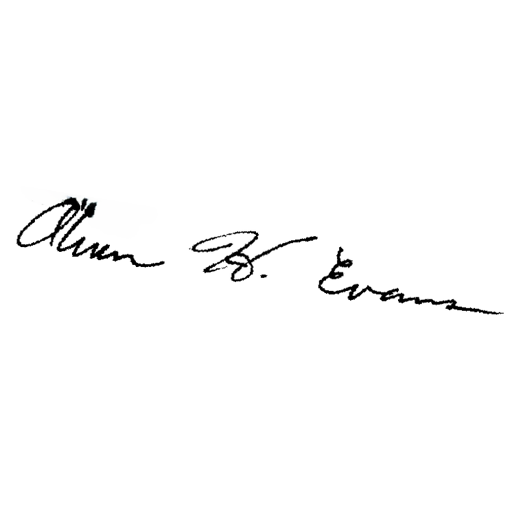 Alvan W. Evans